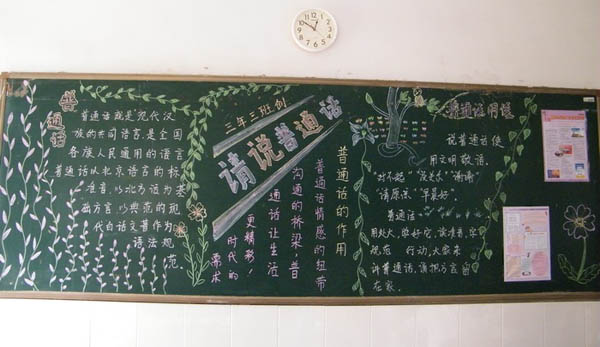 普通话
普通话就是现代汉
族的共同语言,是全国
各族人民通用的语言
普通话以北京语言的标
准音,以北方话为基
础方言,以典范的现
代白话文著作为
语法规
范
三年三班创
请说普通话
普通话的作用
普通话情感的纽带
沟通的桥梁,普
通话让生活
更精彩!
时代的
需求
普通话用语
说普通话使
用文明敬语。
“对不起”“没关系”“谢谢”
“请原谅”“早晨好”.
普通话
用处大,学好它,
规范 行动,大家来
讲普通话,请把方言留
在家.